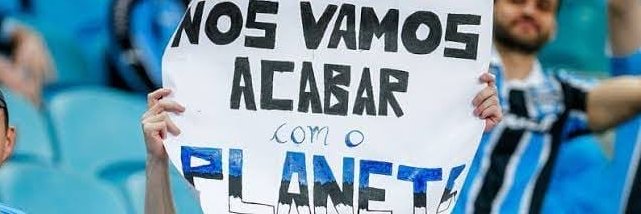 NOS VAMOS
ACABAR
com o
PLANETA